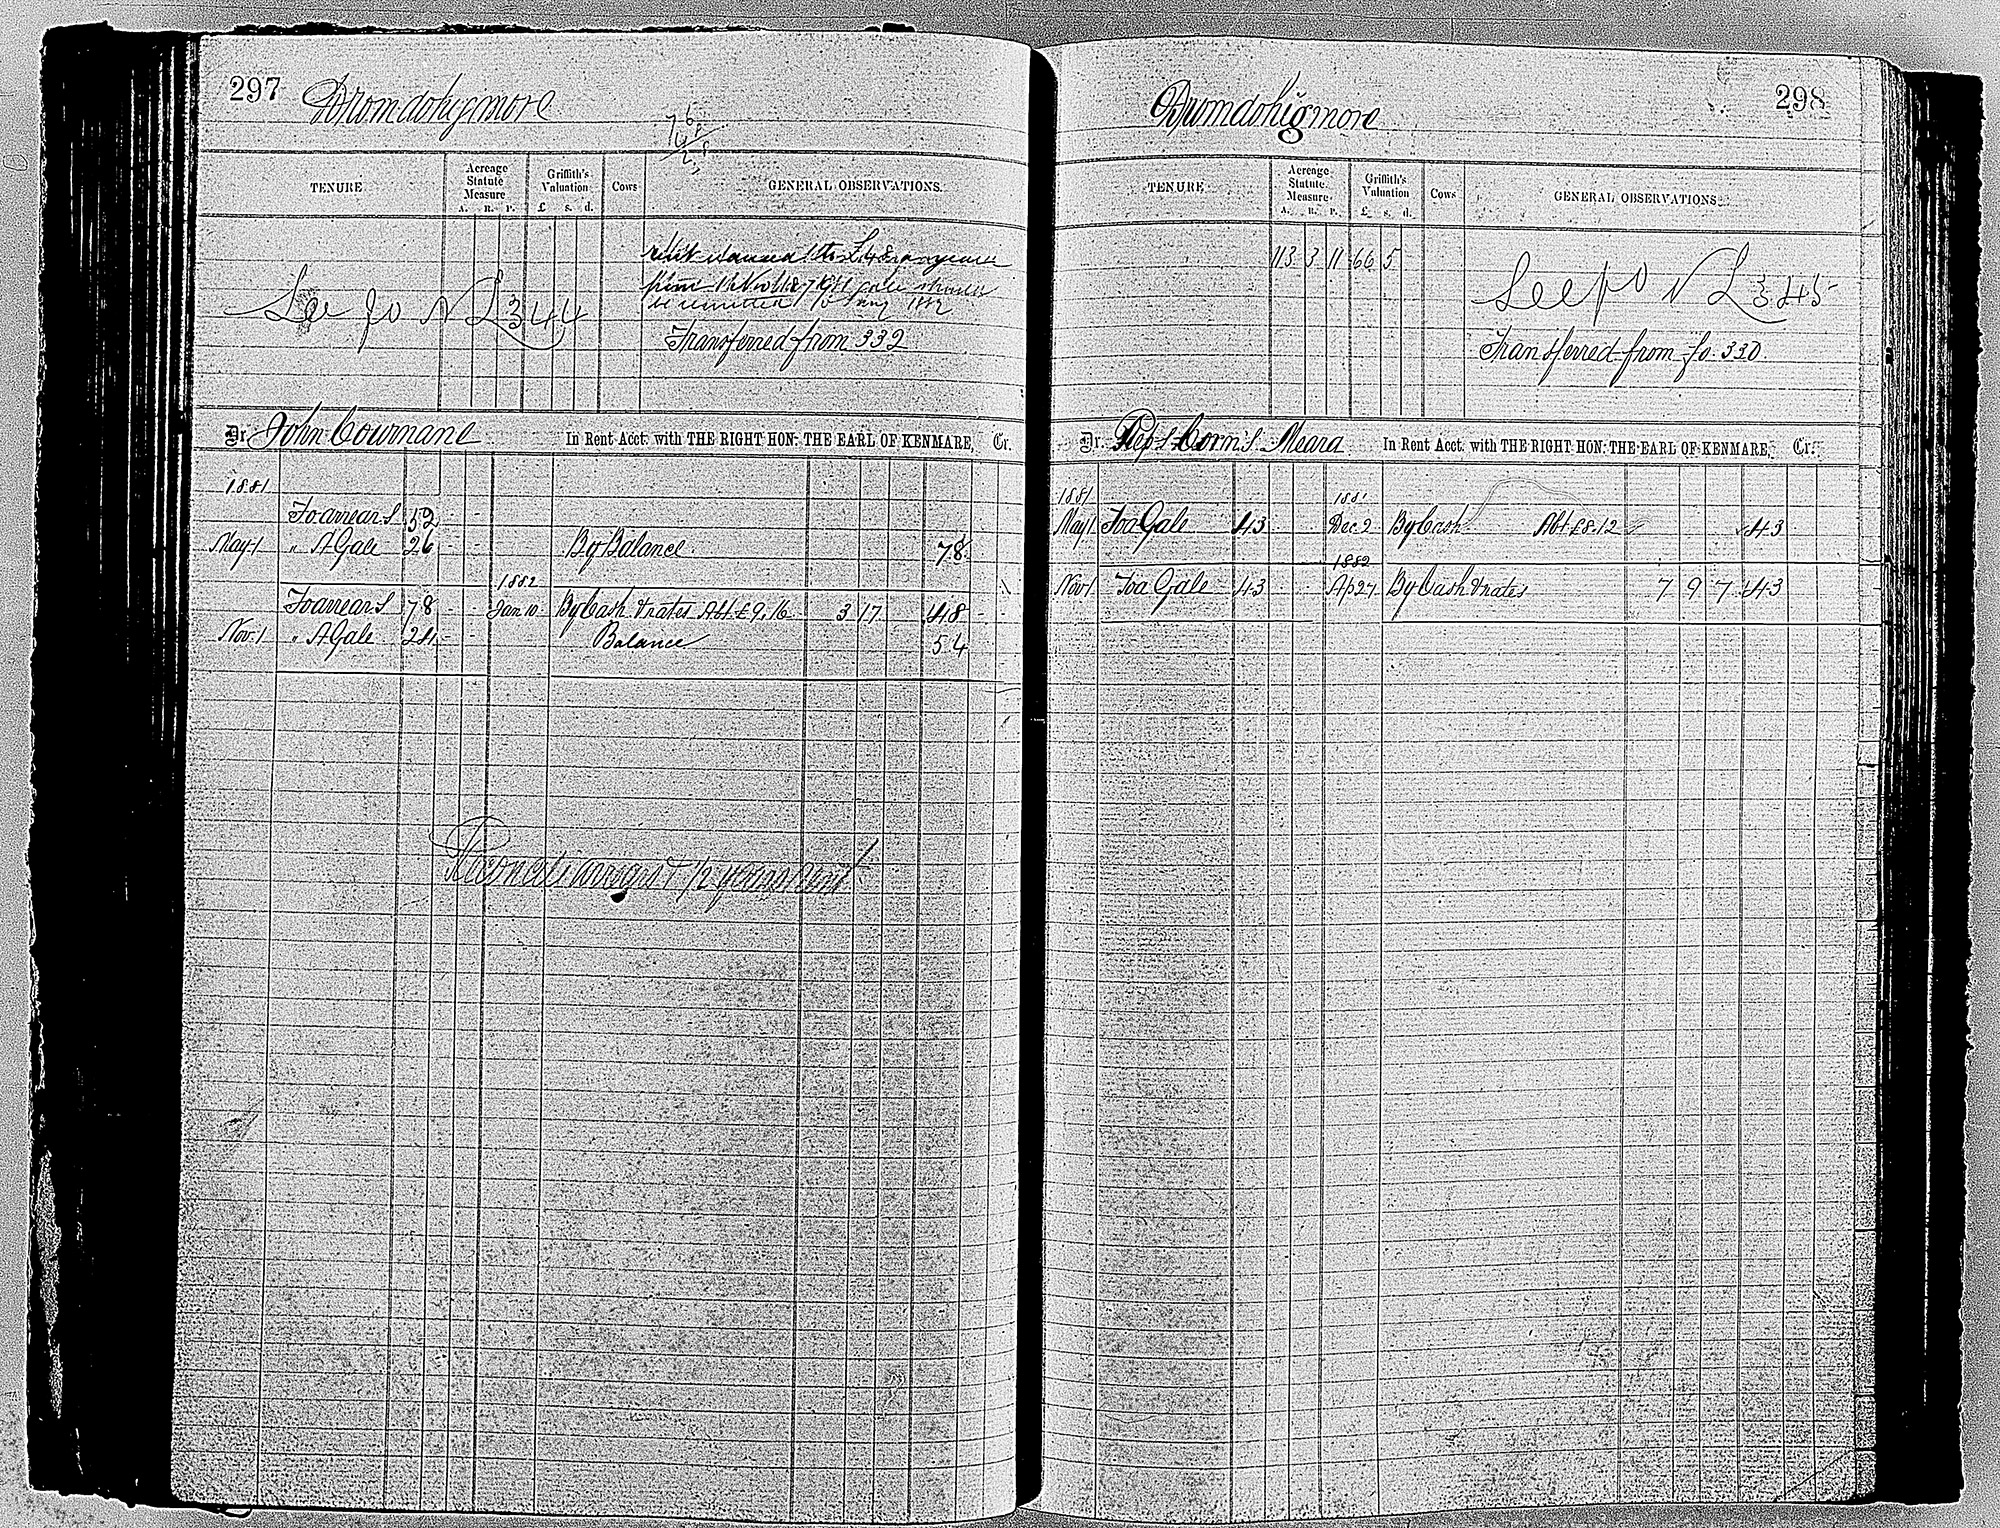 297 Dromdohigmore
TENURE Acreage Statute Measure A. R. P. Griffith's Valuation £ s. d. Cows GENERAL OBSERVATIONS.
rent to £48 a year
from 1 Nov gale should
be remitted 1882
See fo N L 344
Transferred from 332
Dr. John Cournane In Rent Acct. with THE RIGHT HON: THE EARL OF KENMARE, Cr.
1881
To arrears 52
May 1 " A Gale 26 By Balance 78
1882
To arrears 78 Jan 10 By Cash & rates Abt £9,16 3 17 48
Nov. 1 " A Gale 24 Balance 54
arrears & 1/2 years rent
298
Dromdohigmore
TENURE Acreage Statute Measure A. R. P. Griffith's Valuation £ s. d. Cows GENERAL OBSERVATIONS.
113 3 11 66 5
See fo N L 345
Transferred from fo. 330
Dr. Reps Corns. Meara In Rent Acct. with THE RIGHT HON: THE EARL OF KENMARE, Cr.
1881 1881
May 1 To a Gale 43 Dec 2 By Cash Abt £8.12 43
1882
Nov 1 To a Gale 43 Ap 27 By Cash & rates 7 9 7 43